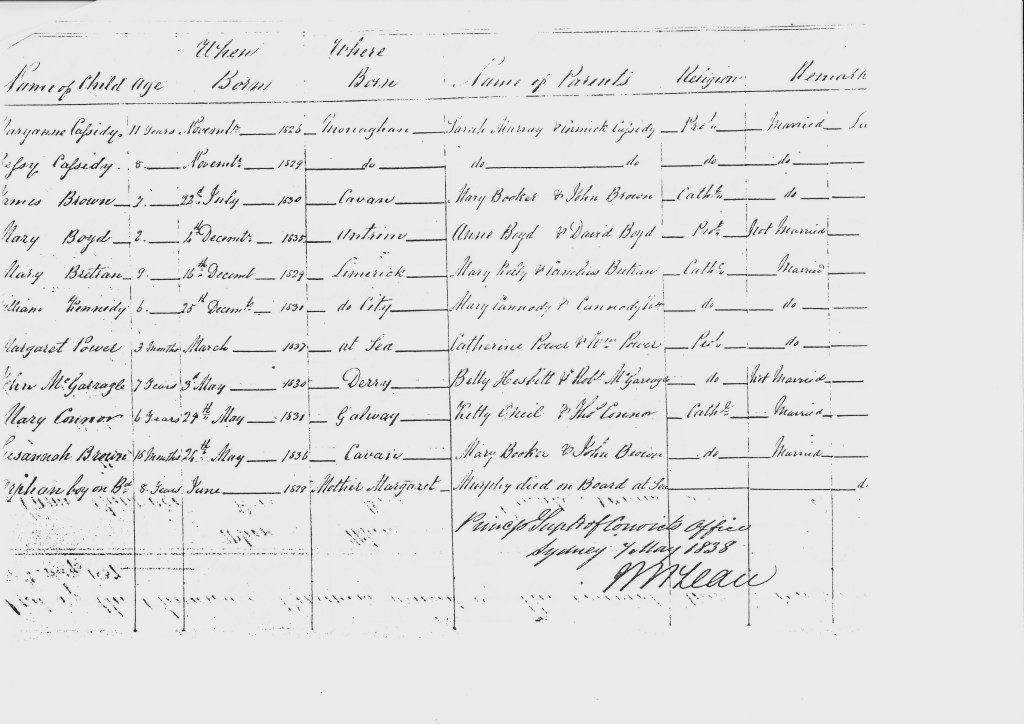 When Where
Name of Child Age Born Born Name of Parents Religion Remark
aryanne Cassidy 11 Years Novembr 1826 Monaghan Sarah Murray & Cormick Cassidy Prot Married
Cassidy 8 Novembr 1829 do do do do do
ames Brown 7 22d July 1830 Cavan Mary Booker & John Brown Cath do
Mary Boyd 2 4th Decembr 1835 Antrim Anne Boyd & David Boyd Prot Not Married
Mary 9 16th Decemb 1829 Limerick Mary & Cornelius Cath Married
illiam Kennedy 6 25th Decembr 1831 do City Mary & do do
argaret Power 3 Months March 1837 at Sea Catherine Power & Wm Power Prot do
John 7 Years 3d May 1830 Derry Betty & Robt do Not Married
Mary Connor 6 Years 29th May 1831 Galway Kitty & Thos Connor Cath Married
Susannah Brown Months May 1836 Cavan Mary Booker & John Brown do Married
rphan boy on Bd 8 Years June 1829 Mother Margaret Murphy died on Board at Sea d
Princpl Supt of Convicts Office
Sydney 7 May 1838